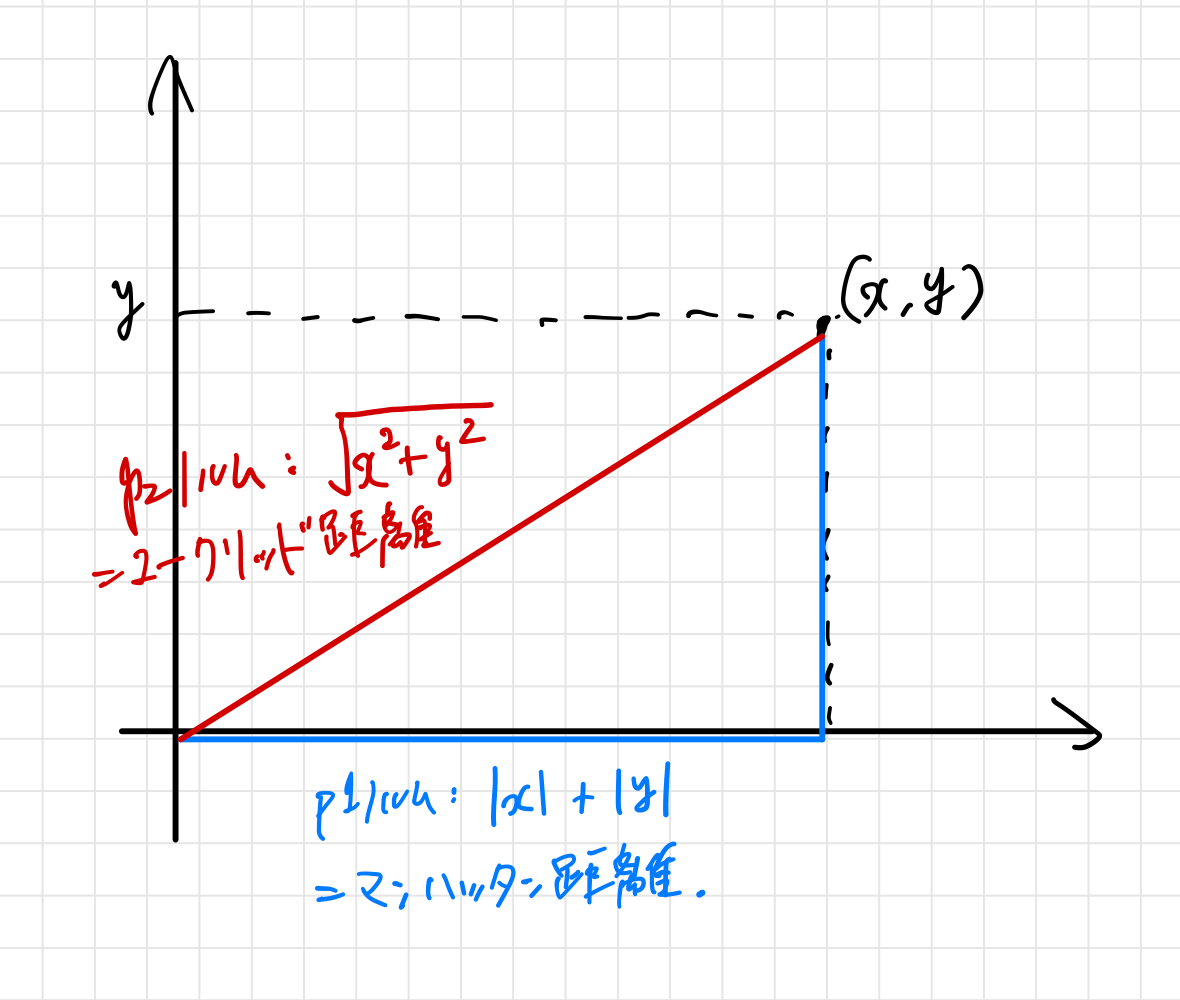 (x, y)
y
p2ノルム: √x²+y²
=ユークリッド距離
p1ノルム: |x| + |y|
=マンハッタン距離.